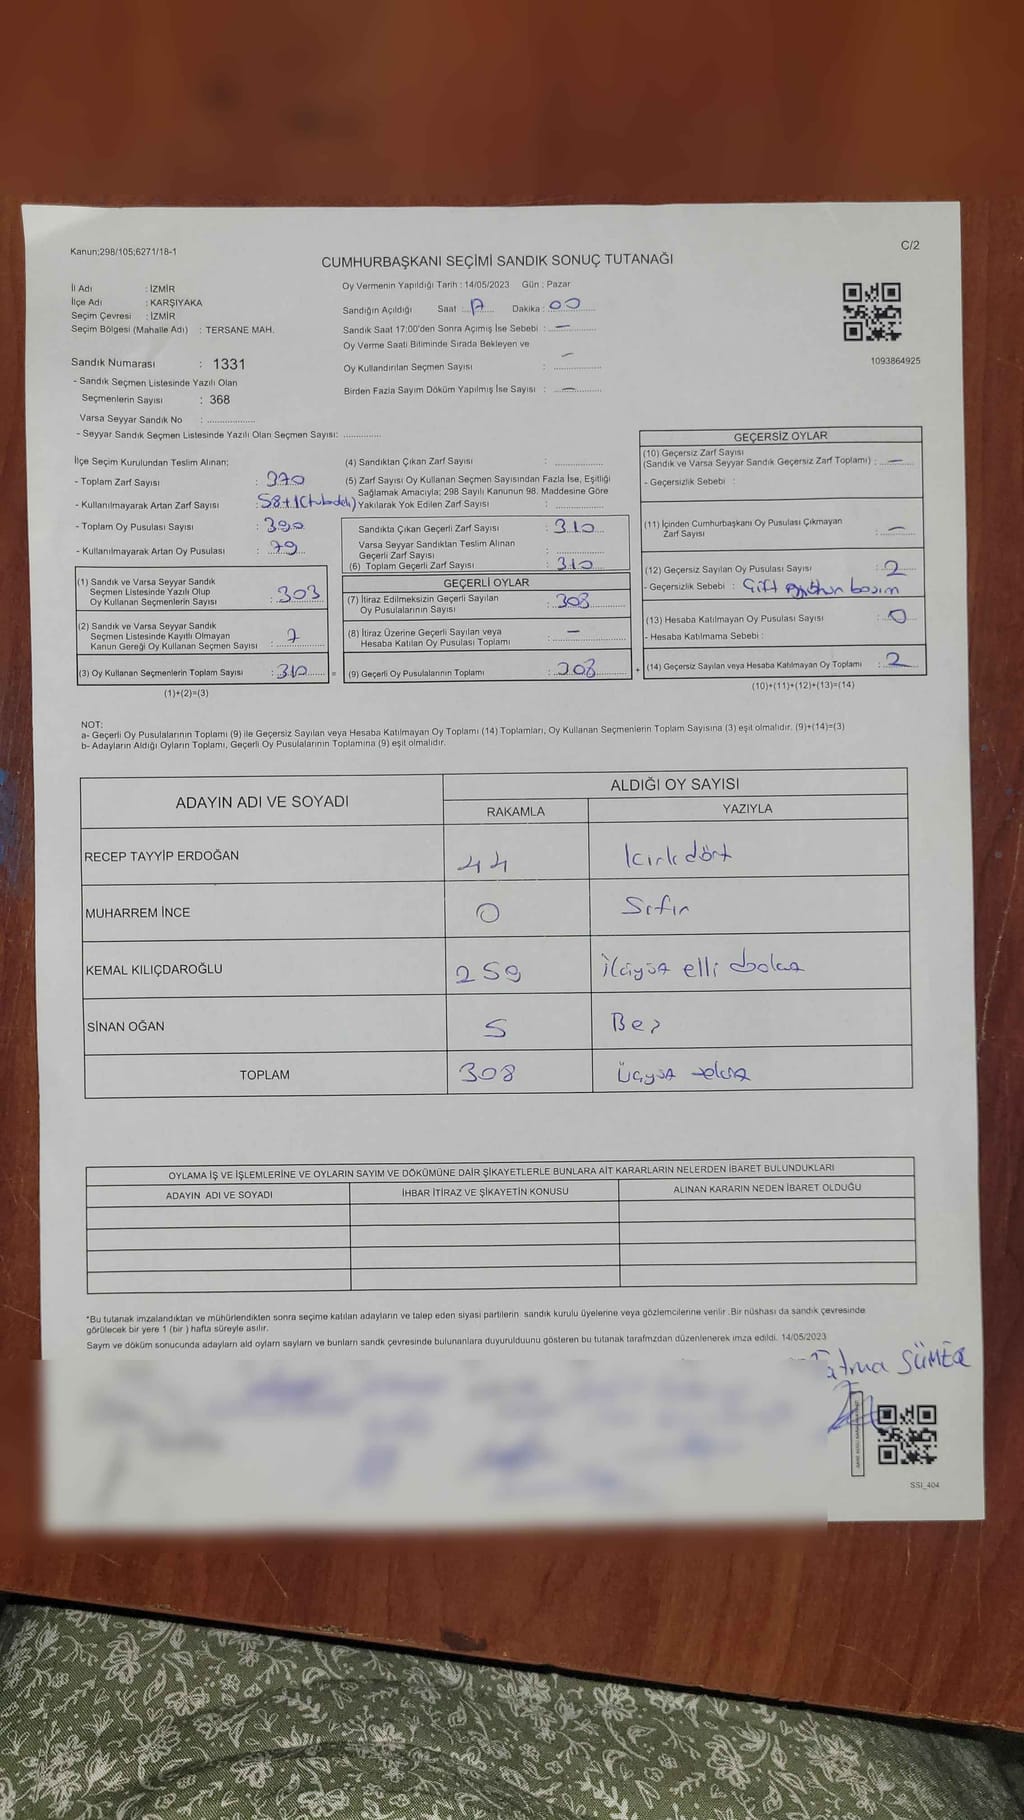 Kanun;298/105;6271/18-1
C/2
CUMHURBAŞKANI SEÇİMİ SANDIK SONUÇ TUTANAĞI
İl Adı : İZMİR
İlçe Adı : KARŞIYAKA
Seçim Çevresi : İZMİR
Seçim Bölgesi (Mahalle Adı) : TERSANE MAH.
Sandık Numarası : 1331
- Sandık Seçmen Listesinde Yazılı Olan
Seçmenlerin Sayısı : 368
Varsa Seyyar Sandık No : ..................
- Seyyar Sandık Seçmen Listesinde Yazılı Olan Seçmen Sayısı: ..............
Oy Vermenin Yapıldığı Tarih : 14/05/2023 Gün : Pazar
Sandığın Açıldığı Saat : 17 Dakika : 00
Sandık Saat 17:00'den Sonra Açımış İse Sebebi : —
Oy Verme Saati Bitiminde Sırada Bekleyen ve
Oy Kullandırılan Seçmen Sayısı : —
Birden Fazla Sayım Döküm Yapılmış İse Sayısı : —
1093864925
İlçe Seçim Kurulundan Teslim Alınan;
- Toplam Zarf Sayısı : 370
- Kullanılmayarak Artan Zarf Sayısı : 58+1
- Toplam Oy Pusulası Sayısı : 390
- Kullanılmayarak Artan Oy Pusulası : 79
(1) Sandık ve Varsa Seyyar Sandık
Seçmen Listesinde Yazılı Olup
Oy Kullanan Seçmenlerin Sayısı : 303
(2) Sandık ve Varsa Seyyar Sandık
Seçmen Listesinde Kayıtlı Olmayan
Kanun Gereği Oy Kullanan Seçmen Sayısı : 7
(3) Oy Kullanan Seçmenlerin Toplam Sayısı : 310
(1)+(2)=(3)
(4) Sandıktan Çıkan Zarf Sayısı : ..............
(5) Zarf Sayısı Oy Kullanan Seçmen Sayısından Fazla İse, Eşitliği
Sağlamak Amacıyla; 298 Sayılı Kanunun 98. Maddesine Göre
Yakılarak Yok Edilen Zarf Sayısı : ..............
Sandıkta Çıkan Geçerli Zarf Sayısı : 310
Varsa Seyyar Sandıktan Teslim Alınan
Geçerli Zarf Sayısı : ..............
(6) Toplam Geçerli Zarf Sayısı : 310
GEÇERLİ OYLAR
(7) İtiraz Edilmeksizin Geçerli Sayılan
Oy Pusulalarının Sayısı : 308
(8) İtiraz Üzerine Geçerli Sayılan veya
Hesaba Katılan Oy Pusulası Toplamı : —
(9) Geçerli Oy Pusulalarının Toplamı : 308
GEÇERSİZ OYLAR
(10) Geçersiz Zarf Sayısı
(Sandık ve Varsa Seyyar Sandık Geçersiz Zarf Toplamı) : —
- Geçersizlik Sebebi :
(11) İçinden Cumhurbaşkanı Oy Pusulası Çıkmayan
Zarf Sayısı : —
(12) Geçersiz Sayılan Oy Pusulası Sayısı : 2
- Geçersizlik Sebebi : Çift
(13) Hesaba Katılmayan Oy Pusulası Sayısı : 0
- Hesaba Katılmama Sebebi :
(14) Geçersiz Sayılan veya Hesaba Katılmayan Oy Toplamı : 2
(10)+(11)+(12)+(13)=(14)
NOT:
a- Geçerli Oy Pusulalarının Toplamı (9) ile Geçersiz Sayılan veya Hesaba Katılmayan Oy Toplamı (14) Toplamları, Oy Kullanan Seçmenlerin Toplam Sayısına (3) eşit olmalıdır. (9)+(14)=(3)
b- Adayların Aldığı Oyların Toplamı, Geçerli Oy Pusulalarının Toplamına (9) eşit olmalıdır.
ADAYIN ADI VE SOYADI ALDIĞI OY SAYISI
RAKAMLA YAZIYLA
RECEP TAYYİP ERDOĞAN 44 Kırkdört
MUHARREM İNCE 0 Sıfır
KEMAL KILIÇDAROĞLU 259 İkiyüz elli dokuz
SİNAN OĞAN 5 Beş
TOPLAM 308 Üçyüz sekiz
OYLAMA İŞ VE İŞLEMLERİNE VE OYLARIN SAYIM VE DÖKÜMÜNE DAİR ŞİKAYETLERLE BUNLARA AİT KARARLARIN NELERDEN İBARET BULUNDUKLARI
ADAYIN ADI VE SOYADI İHBAR İTİRAZ VE ŞİKAYETİN KONUSU ALINAN KARARIN NEDEN İBARET OLDUĞU
*Bu tutanak imzalandıktan ve mühürlendikten sonra seçime katılan adayların ve talep eden siyasi partilerin sandık kurulu üyelerine veya gözlemcilerine verilir .Bir nüshası da sandık çevresinde
görülecek bir yere 1 (bir ) hafta süreyle asılır.
Sayım ve döküm sonucunda adayların ald oyların sayların ve bunların sandk çevresinde bulunanlara duyurulduunu gösteren bu tutanak tarafmzdan düzenlenerek imza edildi. 14/05/2023
Fatma SÜMER
SSI_404